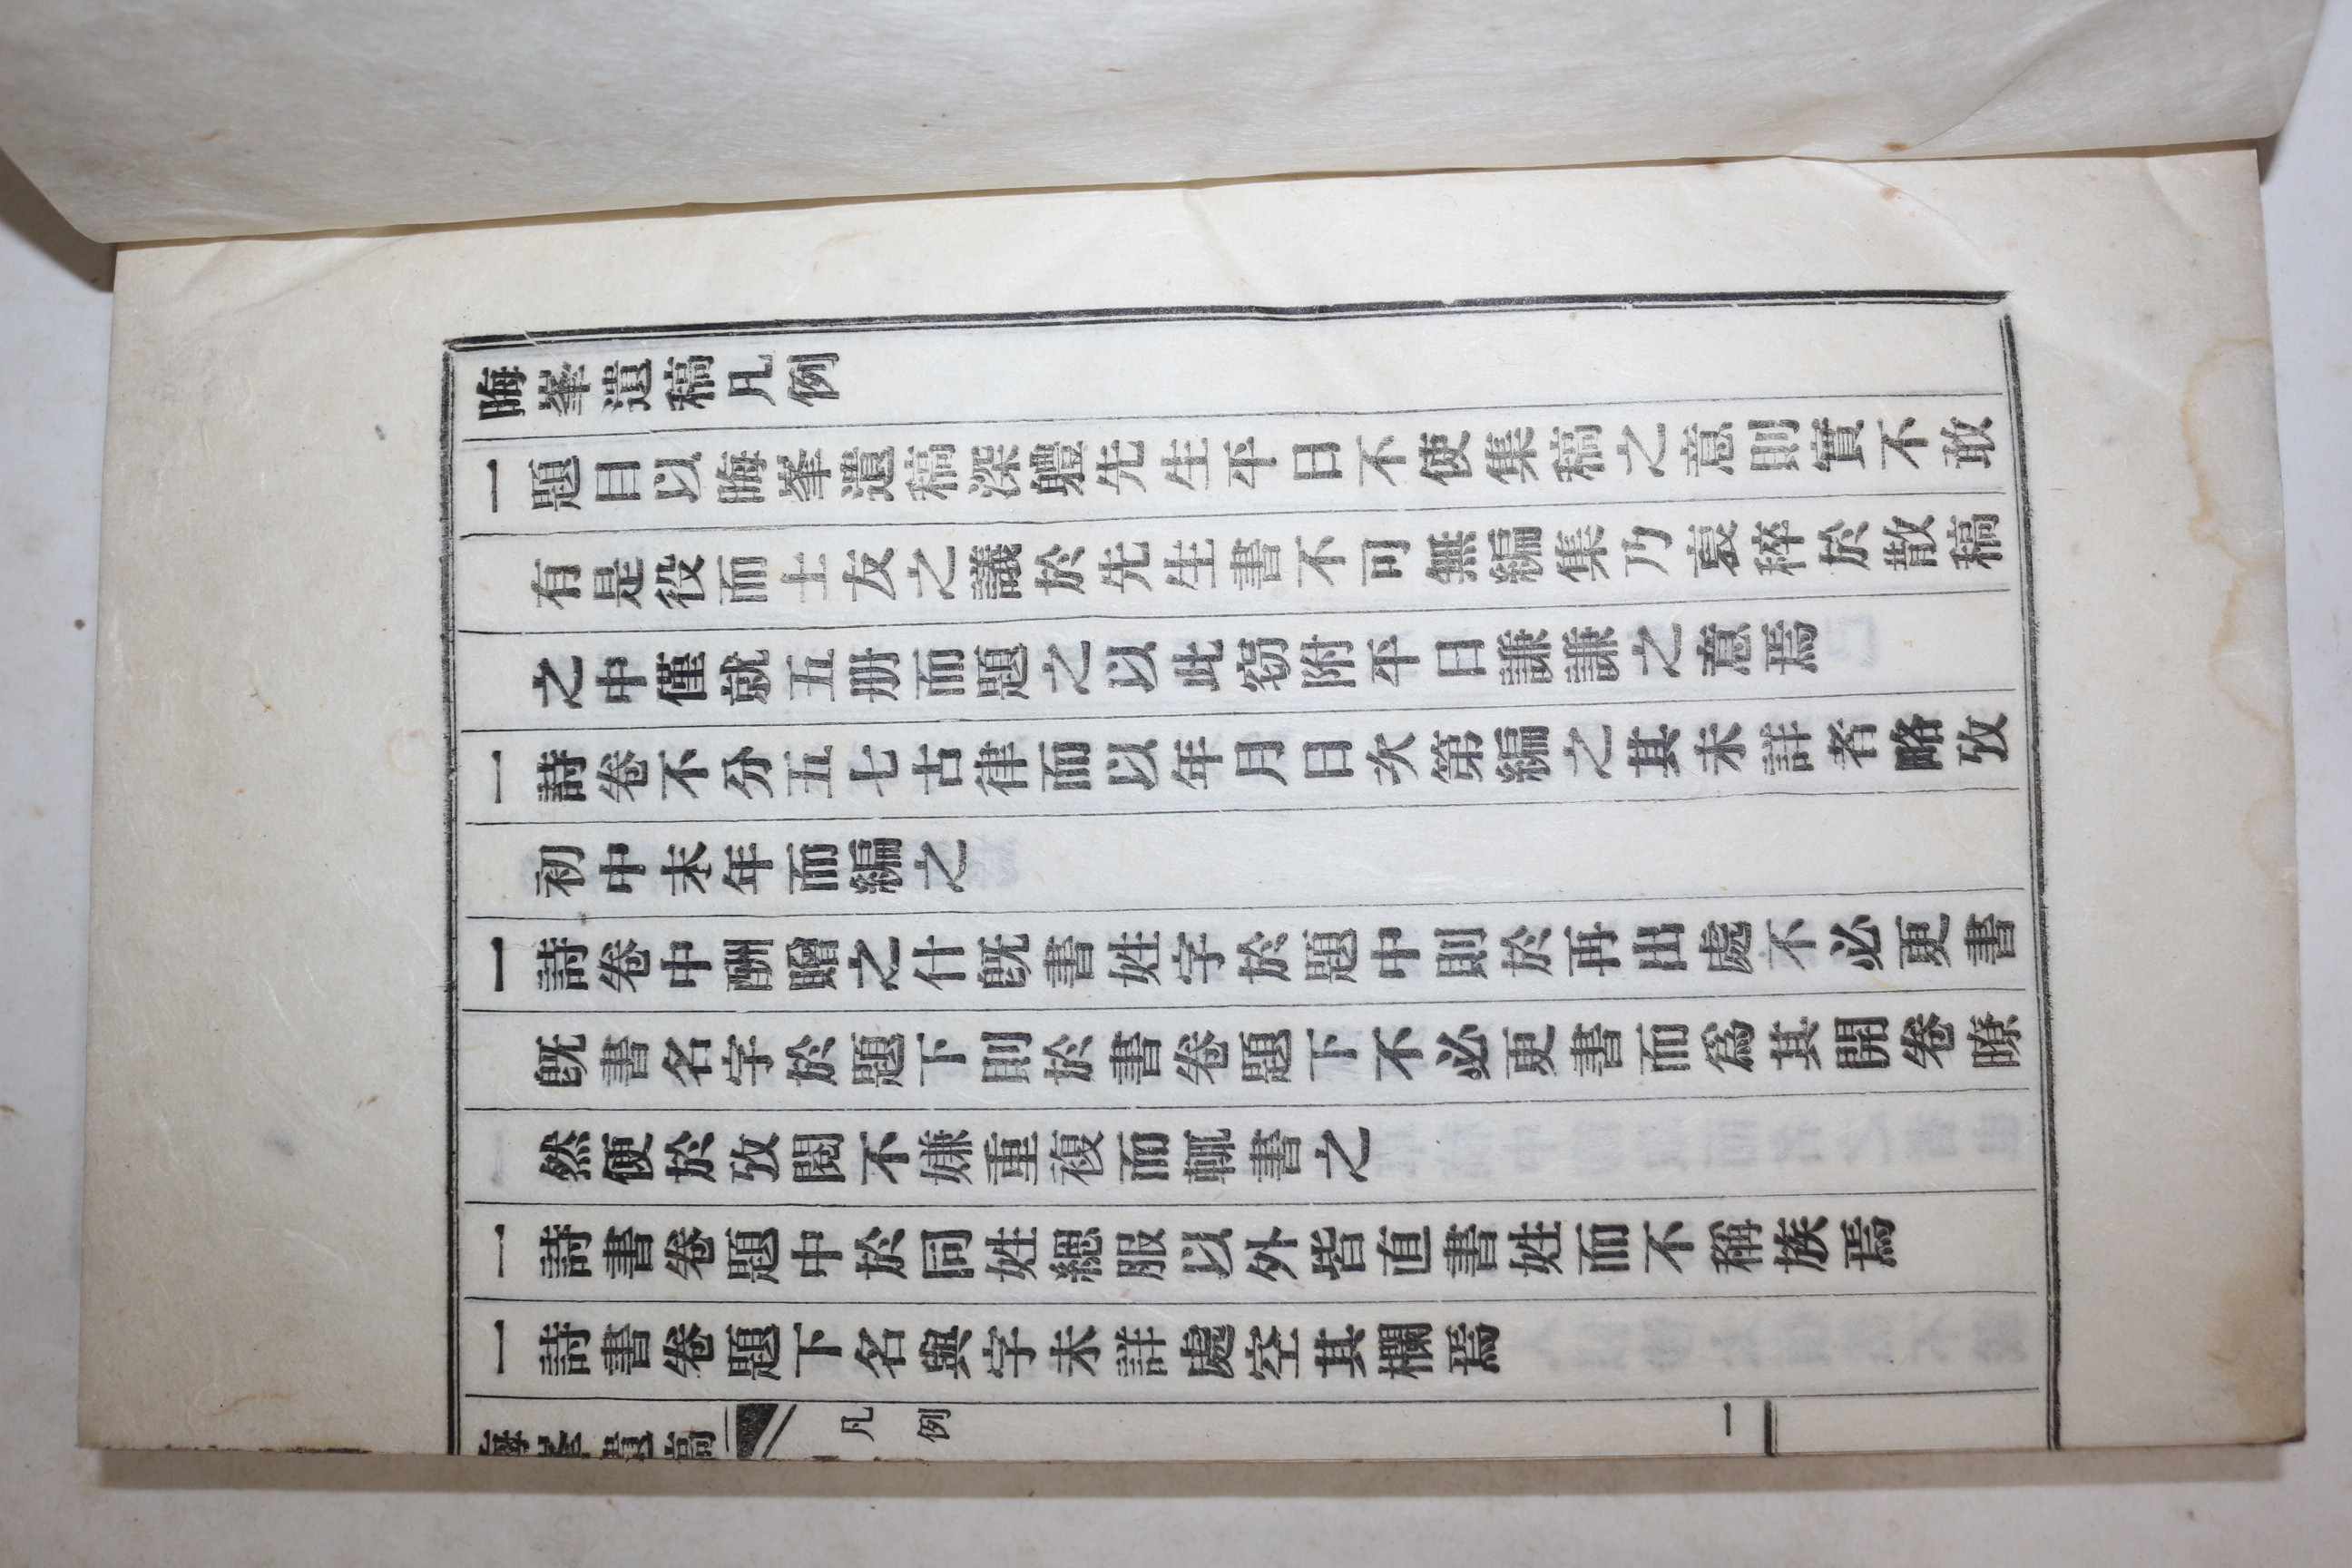 晦峯遺稿凡例
一題曰以晦峯遺稿深軆先生平日不使集稿之意則實不敢
有是役而士友之議於先生書不可無編集乃裒稡於散稿
之中僅就五册而題之以此窃附平日謙謙之意焉
一詩卷不分五七古律而以年月日次第編之其未詳者略攷
初中末年而編之
一詩卷中酬贈之什旣書姓字於題中則於再出處不必更書
旣書名字於題下則於書卷題下不必更書而爲其開卷暸
然便於攷閱不嫌重複而輒書之
一詩書卷題中於同姓緦服以外皆直書姓而不稱族焉
一詩書卷題下名與字未詳處空其欄焉
晦峯遺稿 凡例 一